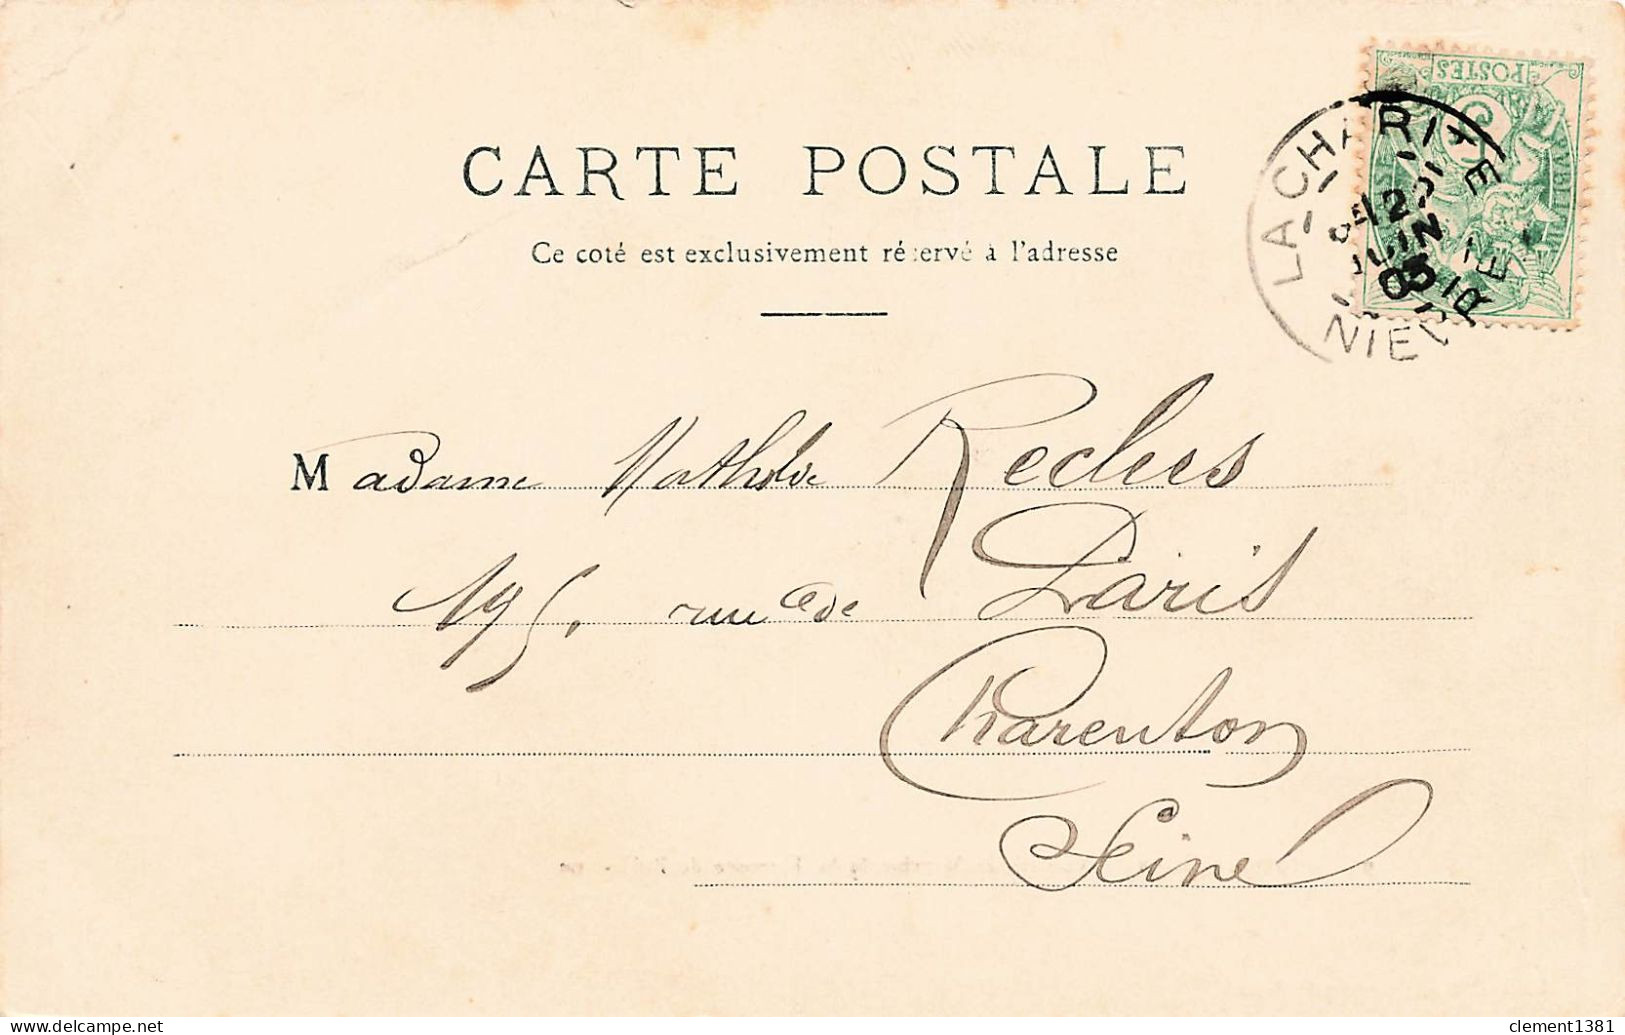 CARTE POSTALE
Ce coté est exclusivement réservé à l'adresse
POSTES
LA CHARITE
12
JUIN
05
NIEVRE
Madame Mathilde Reclus
195, rue de Paris
Charenton
Seine
clement1381